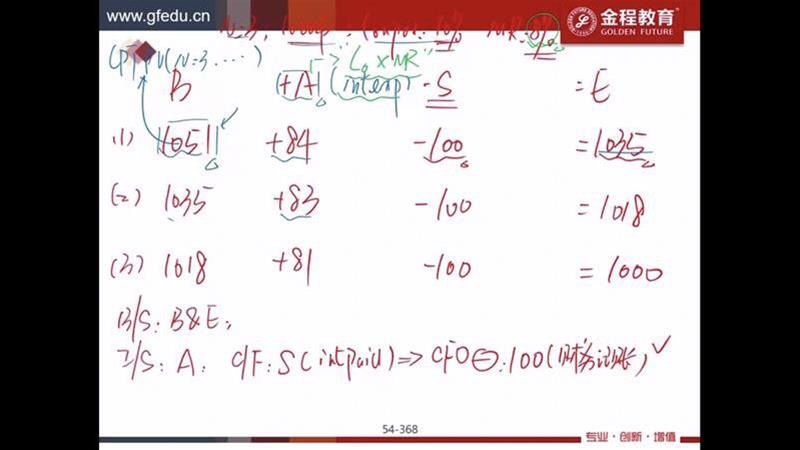 www.gfedu.cn
金程教育
GOLDEN FUTURE
N=3, 1000 Coupon: 10% MR:8%
CPT PV(N=3....) L0 × MR
B +A (int exp) -S = E
(1) 1051 +84 -100 =1035
(2) 1035 +83 -100 =1018
(3) 1018 +81 -100 =1000
B/S: B&E;
I/S: A; CF: S(int paid) => CFO⊖:100(财务记账)✓
54-368
专业·创新·增值